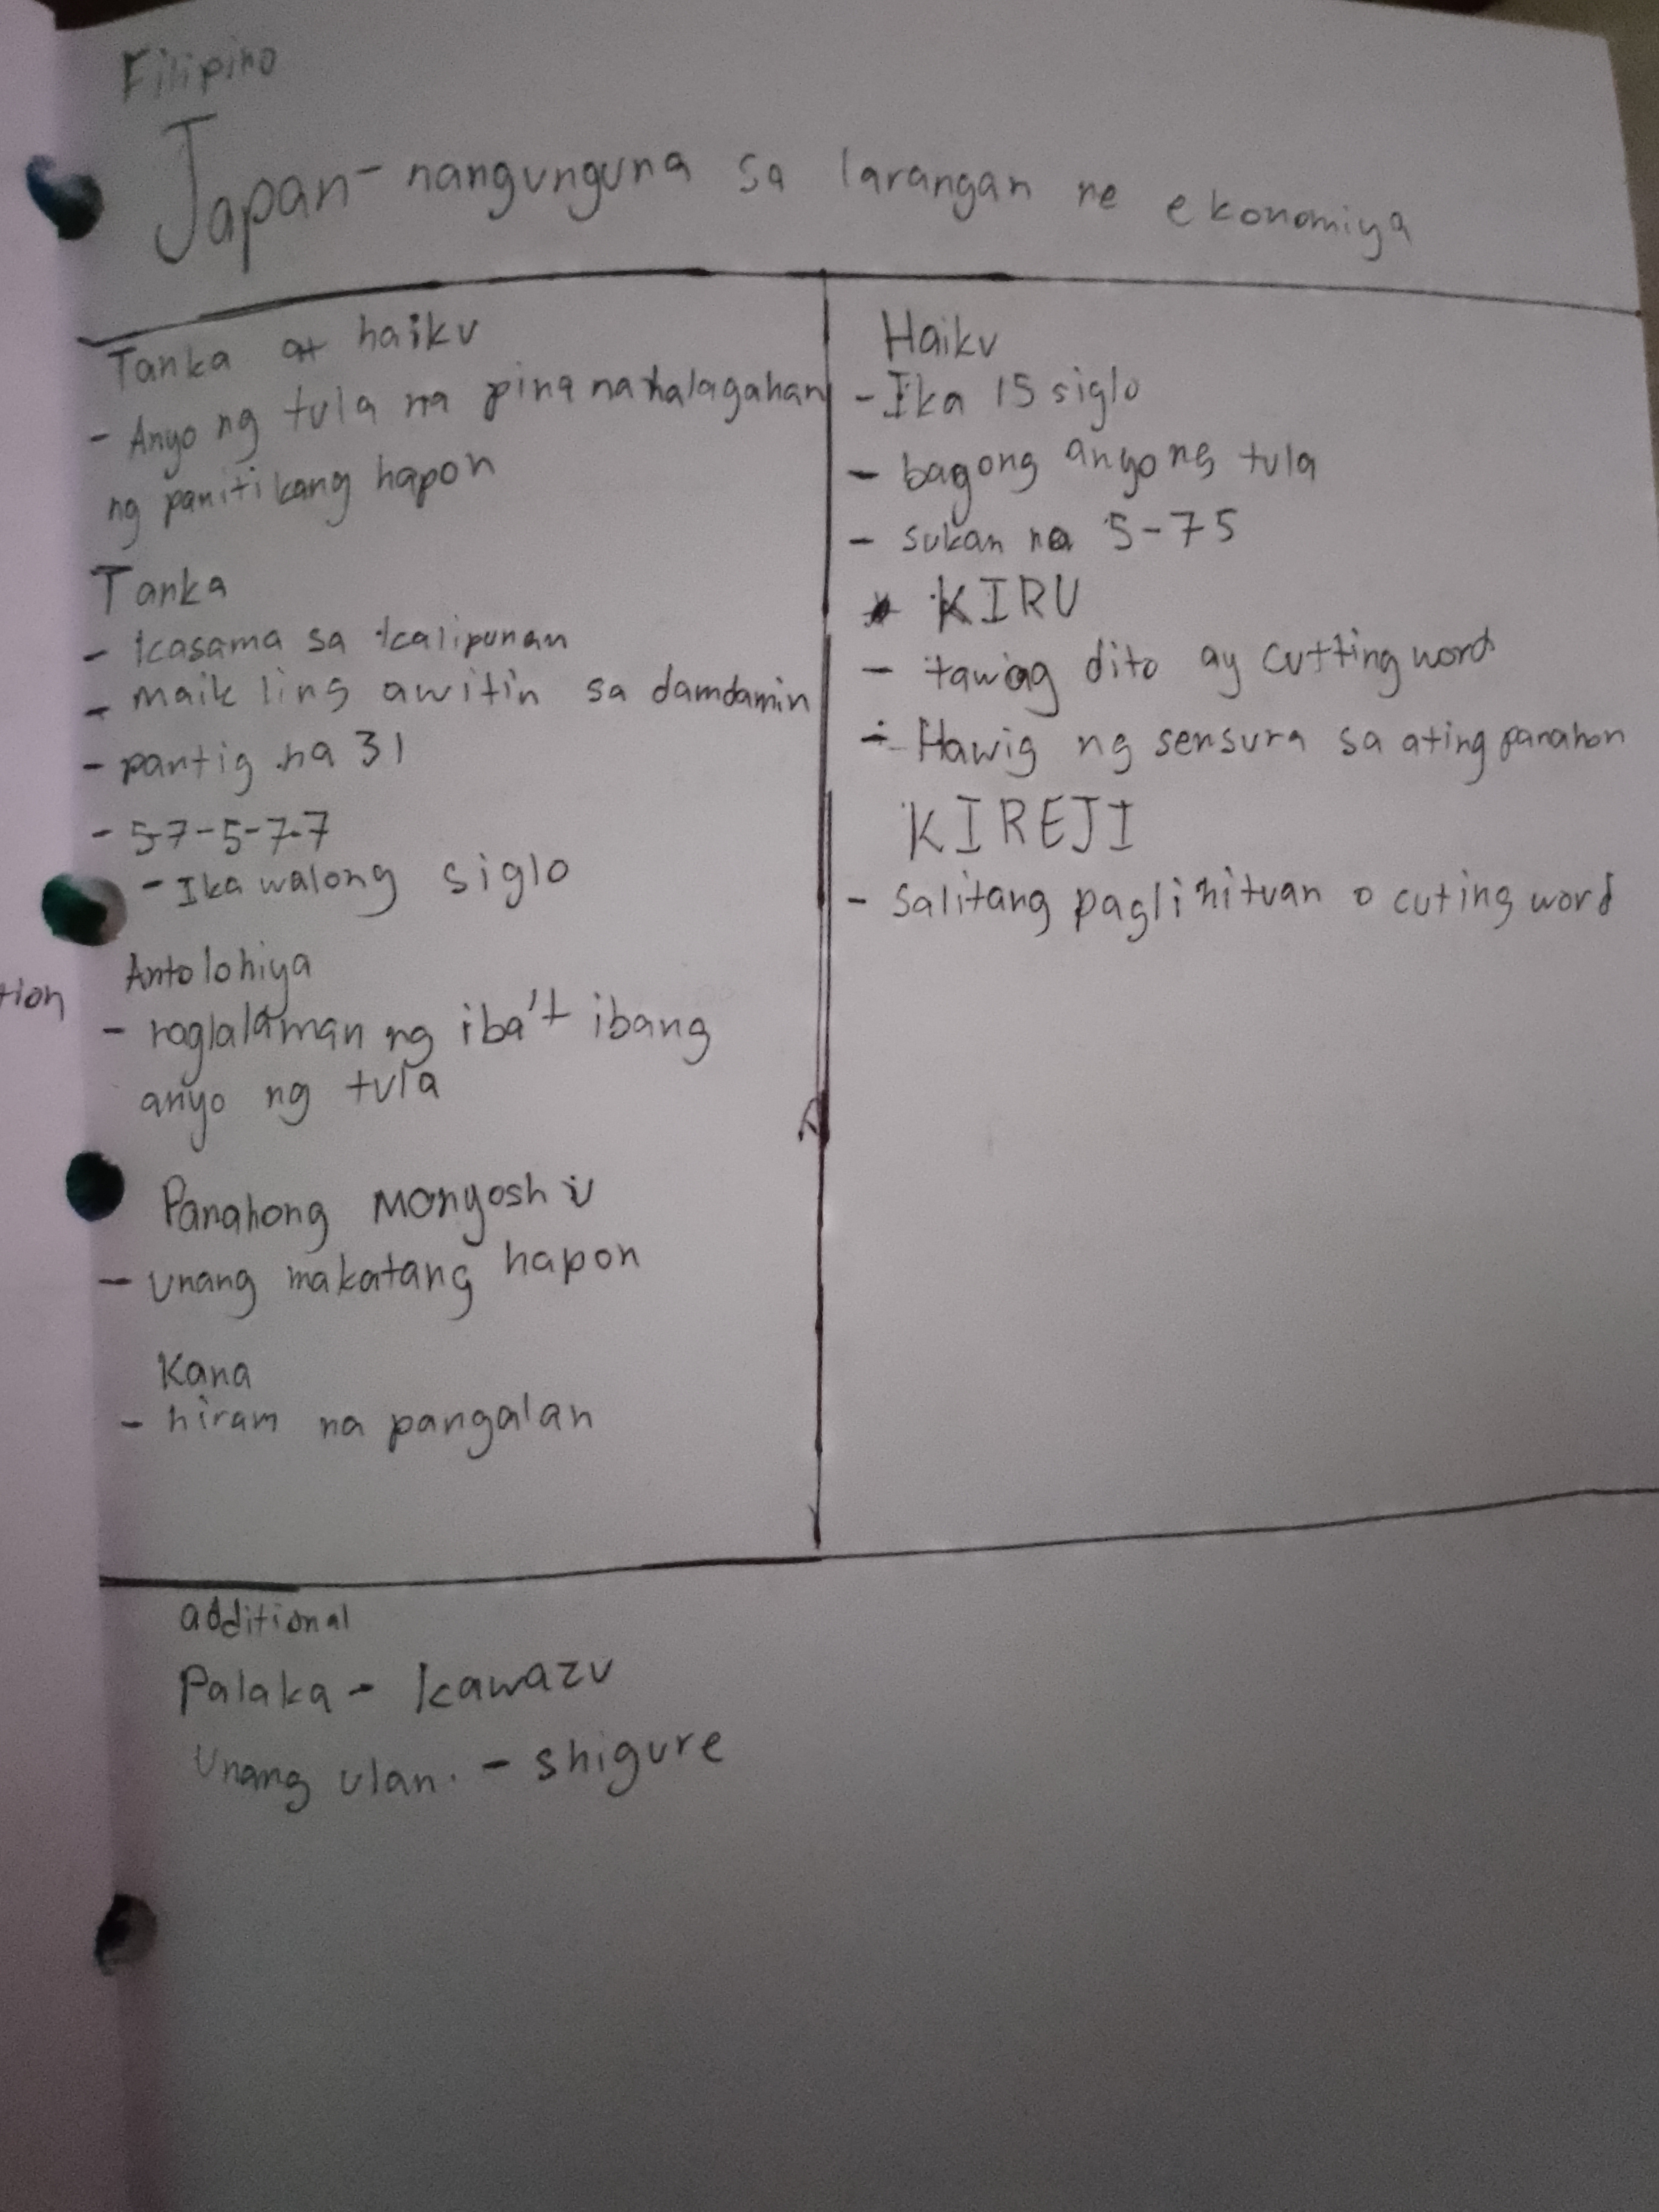 Filipino
Japan - nangunguna sa larangan ne ekonomiya
Tanka at haiku
- Anyo ng tula na pina nahalagahan
ng panitikang hapon
Tanka
- kasama sa kalipunan
- maikling awitin sa damdamin
- pantig na 31
- 5-7-5-7-7
- Ika walong siglo
Antolohiya
- naglalaman ng iba't ibang
anyo ng tula
Panahong Manyoshu
- unang makatang hapon
Kana
- hiram na pangalan
Haiku
- Ika 15 siglo
- bagong anyo ng tula
- sukan na 5-75
* KIRU
- tawag dito ay cutting word
- Hawig ng sensura sa ating panahon
KIREJI
- Salitang paglihituan o cuting word
tion
additional
Palaka - kawazu
Unang ulan. - shigure